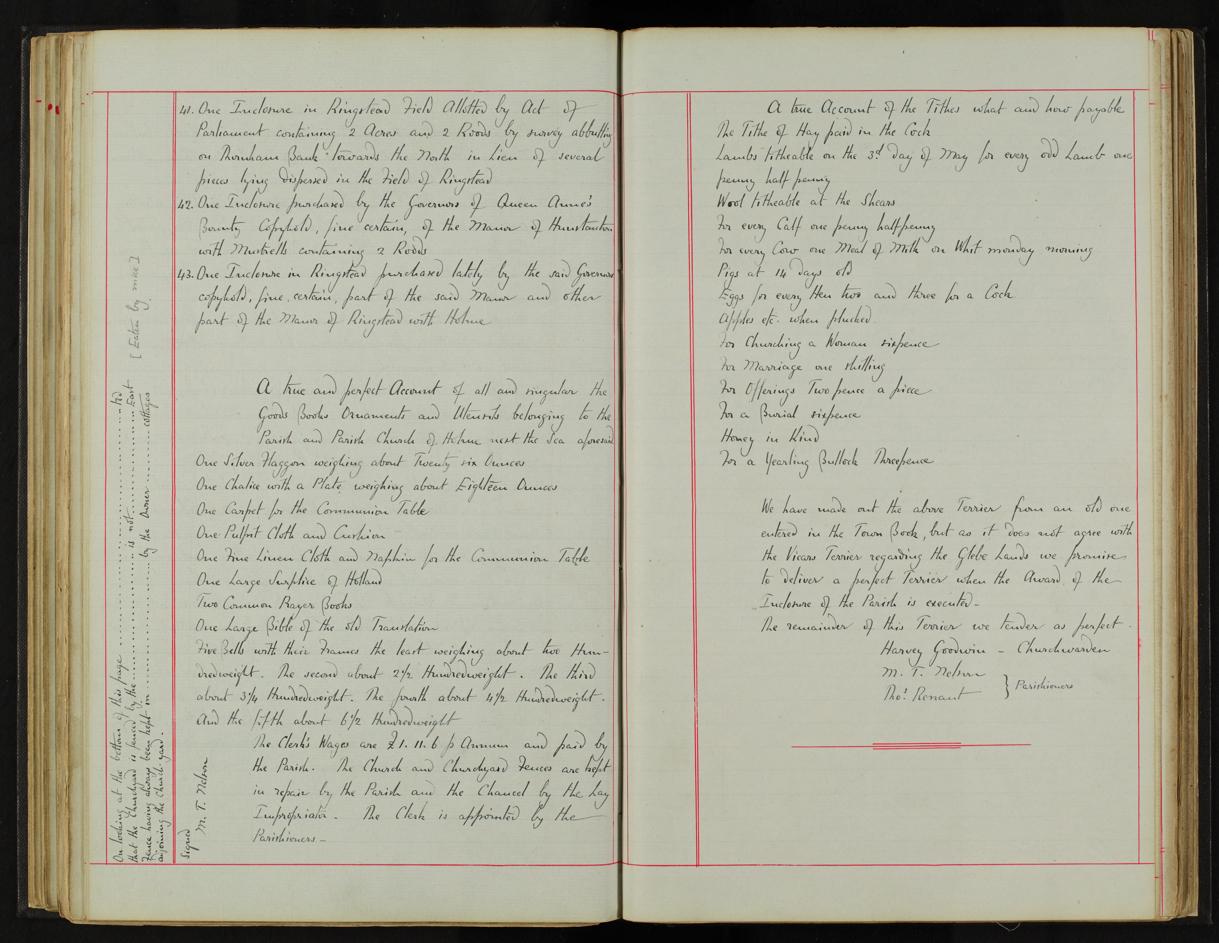 41. One Inclosure in Ringstead Field Allotted by Act of
Parliament containing 2 Acres and 2 Roods by survey abbutting
on Thornham Bank towards the North in Lieu of several
pieces lying dispersed in the Field of Ringstead
42. One Inclosure purchased by the Governors of Queen Anne's
Bounty Copyhold, fine certain, of the Manor of Hunstanton
with Mustrells containing 2 Roods
43. One Inclosure in Ringstead purchased lately by the said Governors
copyhold, fine certain, part of the said Manor and other
part of the Manor of Ringstead with Holme
A true and perfect Account of all and singular the
Goods Books Ornaments and Utensils belonging to the
Parish and Parish Church of Holme next the Sea aforesaid
One Silver Flaggon weighing about Twenty six Ounces
One Chalice with a Plate weighing about Eighteen Ounces
One Carpet for the Communion Table
One Pulpit Cloth and Cushion
One Fine Linen Cloth and Napkin for the Communion Table
One Large Surplice of Holland
Two Common Prayer Books
One Large Bible of the old Translation
Five Bells with their Frames the least weighing about two Hun-
dredweight. The second about 2 1/2 Hundredweight. The third
about 3 1/4 Hundredweight. The fourth about 4 1/2 Hundredweight.
And the fifth about 6 1/2 Hundredweight
The Clerk's Wages are £1. 11. 6 p Annum and paid by
the Parish. The Church and Churchyard Fences are kept
in repair by the Parish and the Chancel by the Lay
Impropriator. The Clerk is appointed by the
Parishioners -
Signed
M. T. Nelson
On looking at the bottom of this page
that the Churchyard is fenced by the is not East
Fence having always been kept in by the Owner cottages
adjoining the Church yard.
[Eaten by mice]
A true Account of the Tithes what and how payable
The Tithe of Hay paid in the Cock
Lambs titheable on the 3d day of May for every odd Lamb one
penny half penny
Wool titheable at the Shears
For every Calf one penny halfpenny
For every Cow one Meal of Milk on Whit monday morning
Pigs at 14 days old
Eggs for every Hen two and three for a Cock
Apples etc. when plucked
For Churching a Woman sixpence
For Marriage one shilling
For Offerings Two pence a piece
For a Burial sixpence
Honey in Kind
For a Yearling Bullock Threepence
We have made out the above Terrier from an old one
entered in the Town Book, but as it does not agree with
the Vicars Terrier regarding the Glebe Lands we promise
to deliver a perfect Terrier when the Award of the
Inclosure of the Parish is executed -
The remainder of this Terrier we tender as perfect -
Harvey Goodwin - Churchwarden
M. T. Nelson
Thos. Renaut } Parishioners